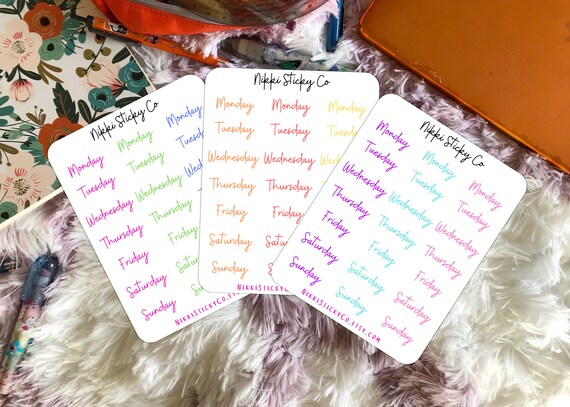 Nikki Sticky Co
Monday Monday Monday
Tuesday Tuesday Tuesday
Wednesday Wednesday
Thursday Thursday
Friday Friday
Saturday
Sunday
NikkiStickyCo.
Nikki Sticky Co
Monday Monday Monday
Tuesday Tuesday Tuesday
Wednesday Wednesday
Thursday Thursday
Friday Friday
Saturday Saturday
Sunday
Nikki Sticky Co
Monday Monday Monday
Tuesday Tuesday Tuesday
Wednesday Wednesday Wednesday
Thursday Thursday Thursday
Friday Friday Friday
Saturday Saturday Saturday
Sunday Sunday Sunday
NikkiStickyCo.Etsy.com